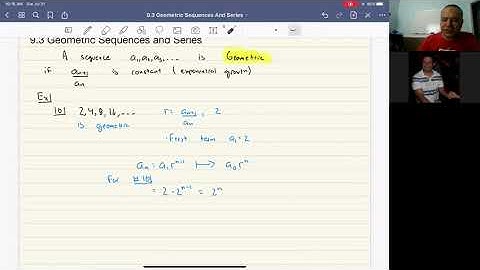 9.3 Geometric Sequences And Series
9.3 Geometric Sequences and Series
A sequence a₁, a₂, a₃, .... is Geometric
if aₙ₊₁/aₙ is constant (exponential growth)
Ex)
2, 4, 8, 16, .... r = aₙ₊₁/aₙ = 2
is geometric
First term a₁ = 2
aₙ = a₁rⁿ⁻¹ ⟼ a₀rⁿ
For
= 2·2ⁿ⁻¹ = 2ⁿ